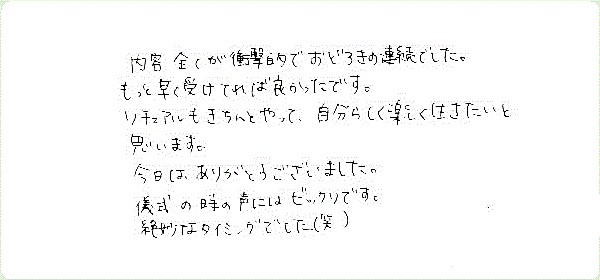 内容全てが衝撃的でおどろきの連続でした。
もっと早く受けてれば良かったです。
リチュアルもきちんとやって、自分らしく楽しく生きたいと
思います。
今日は、ありがとうございました。
儀式の時の声にはビックリです。
絶妙なタイミングでした(笑)